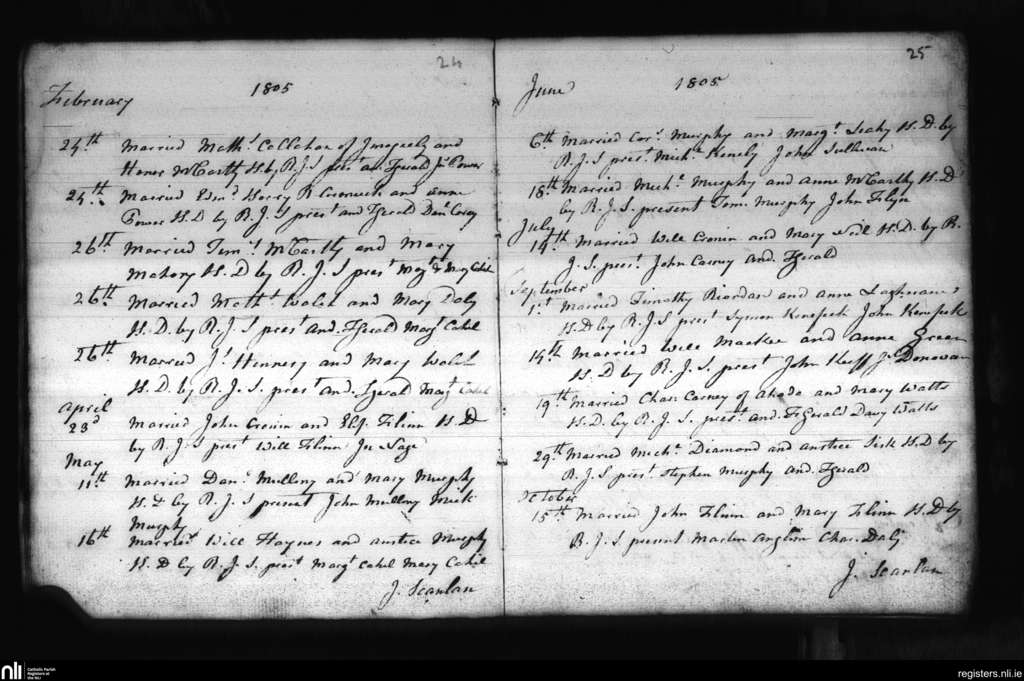 24
February 1805
24th Married Matht Callahan of and
Honor McCarthy H.D by R.J.S prest and Fgerald Js Power
24th Married Edmd Barry R and Anne
Power H.D by R.J.S prest and Fgerald Danl
26th Married Timt McCartly and Mary
Mahony H.D by R.J.S prest Margt & Mary Cahil
26th Married Matht Walsh and Mary Daly
H.D. by R.J.S prest and. Fgerald Margt Cahil
26th Married Js Hennery and Mary Walsh
H.D. by R.J.S. prest and. Fgerald Margt Cahil
April
23d Married John Cronin and Elizh Flinn H.D
by R.J.S prest Will Flinn Jn Sage
May
11th Married Danl Mullony and Mary Murphy
H.D by R.J.S present John Mullony Mick
Murphy
16th Married Will Haynes and anstice Murphy
H.D by R.J.S. prest Margt Cahil Mary Cahil
J. Scanlan
25
June 1805
6th Married Cors Murphy and Margt Leahy H.D. by
R.J.S prest Michl Kenely John Sullivan
18th Married Michl Murphy and anne McCarthy H.D
by R.J.S. present Tom. Murphy John Flyn
July
14th Married Will Cronin and Mary Neil H.D. by R.
J.S. prest John Carny and. Fgerald
September
1st Married Timothy Riordan and anne
H.D by R.J.S prest Symon Kenefeck John Kenefeck
14th Married Will Mackee and anne Green
H.D by R.J.S. prest John Huff Js Donovan
19th Married Chas Carney of Ahada and Mary Watts
H.D. by R.J.S. prest and. FGerald Davy Watts
29th Married Michl Diamond and anstice Sisk H.D by
R.J.S prest Stephen Murphy and. Fgerald
October
15th Married John Flinn and Mary Flinn H.D by
R.J.S present Martin Anglim Chas. Daly
J. Scanlan
nli
Catholic Parish
Registers at
the NLI
registers.nli.ie